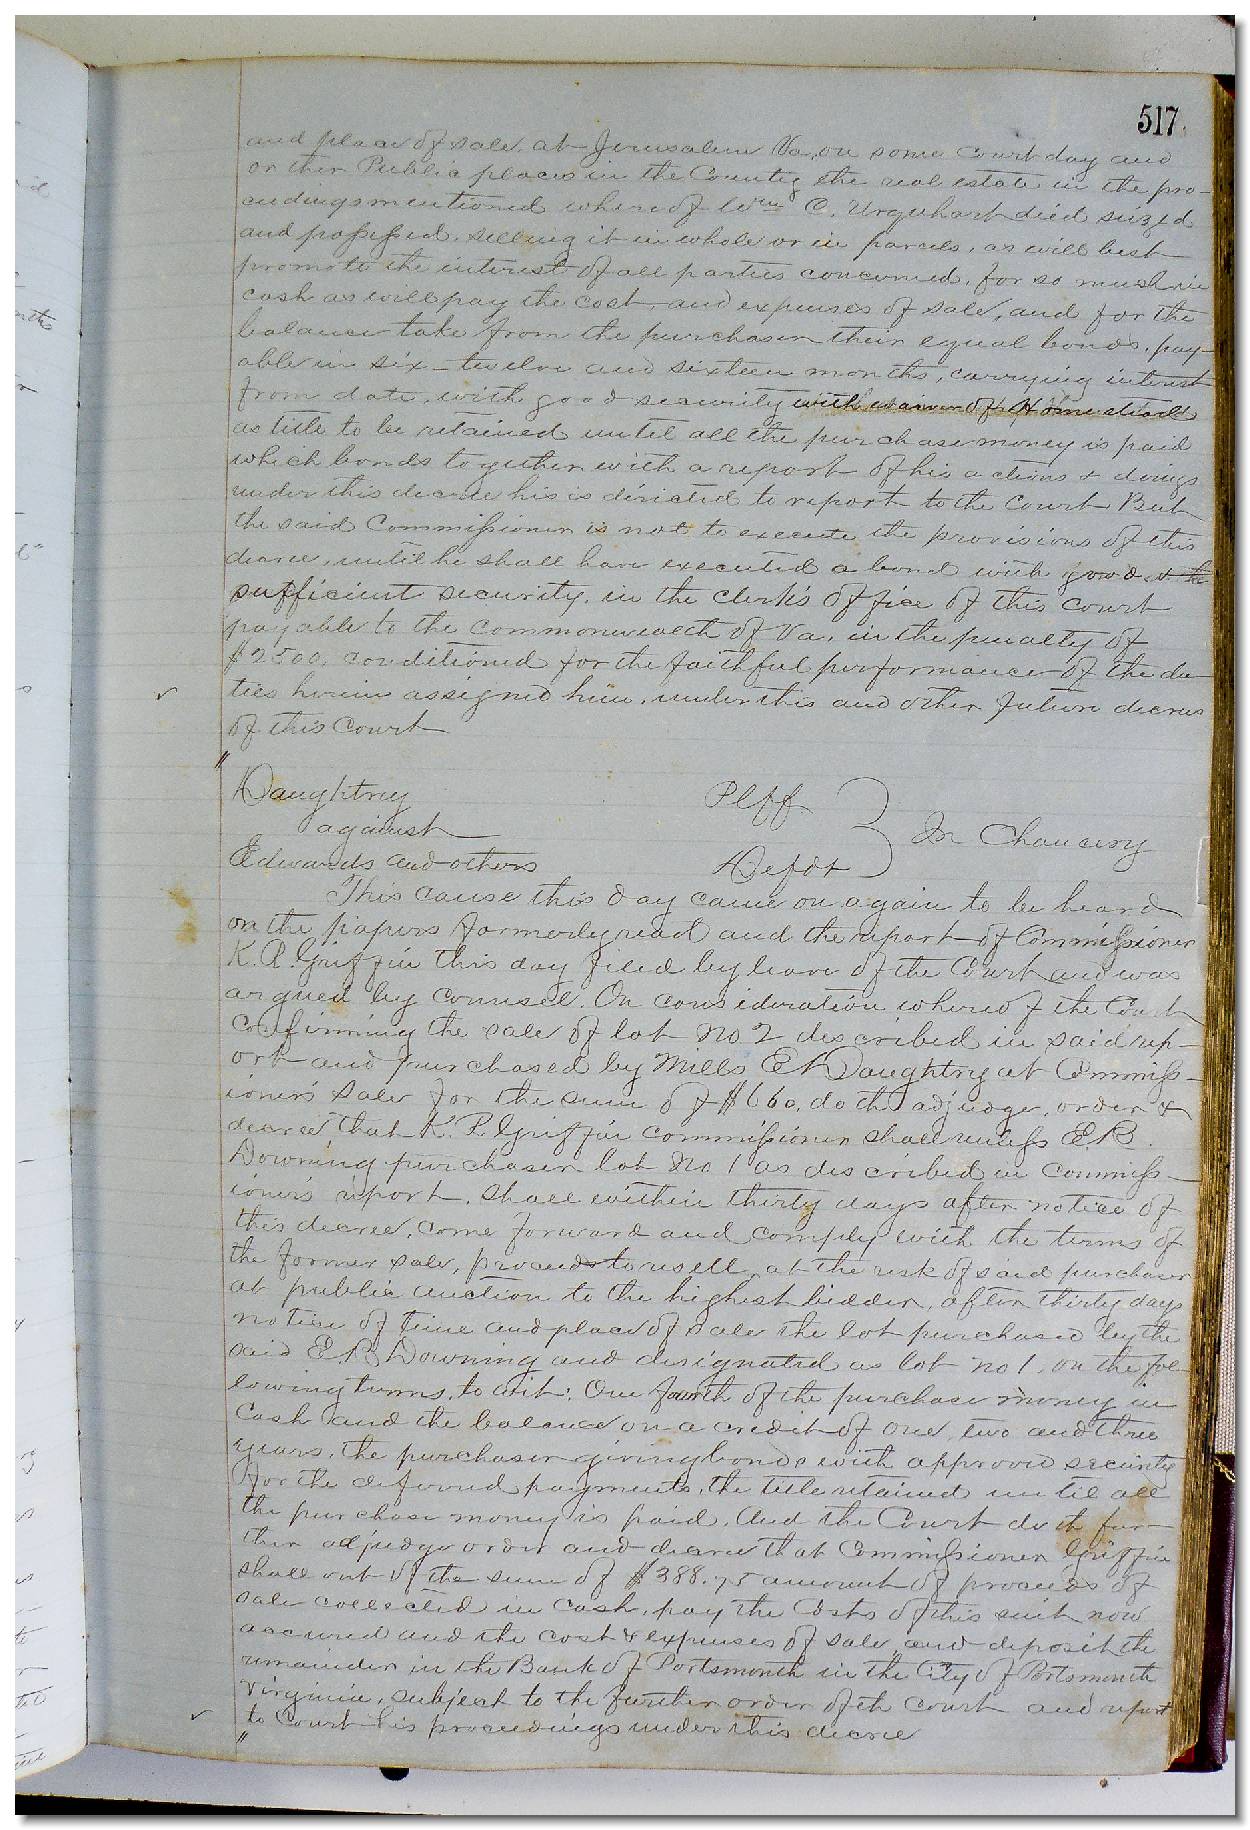 517
and place of sale, at Jerusalem Va, on some Court day and
or ther Public places in the County the real estate in the pro-
ceedings mentioned where of Wm C. Urquhart died seized
and possessed. selling it in whole or in parcels, as will best
promote the interest of all parties concerned, for so much in
cash as will pay the cost and expenses of sale, and for the
balance take from the purchaser their equal bonds, pay-
able in six - twelve and sixteen months, carrying interest
from date, with good security with waiver of Homestead
as title to be retained until all the purchase money is paid
which bonds together with a report of his actions & doings
under this decree his is directed to report to the Court But
the said Commissioner is not to execute the provisions of this
decree, until he shall have executed a bond with good & the
sufficient security, in the clerk's office of this court
payable to the Commonwealth of Va, in the penalty of
$2500, conditioned for the faithful performance of the du-
ties herein assigned him, under this and other future decrees
of this Court
Daughtrey Plff
against In Chancery
Edwards and others Defdt
This cause this day came on again to be heard
on the papers formerly read and the report of Commissioner
K. R. Griffin this day filed by leave of the Court and was
argued by counsel. On consideration where of the Court
confirming the sale of lot No 2 described in said rep-
ort and purchased by Mills E Daughtry at Commiss-
ioner's sale for the sum of $660, doth adjudge, order &
decree that K. R. Griffin commissioner shall unless E. B.
Downing purchaser lot No 1 as described in commiss-
ioner's report, shall within thirty days after notice of
this decree, come forward and comply with the terms of
the former sale, proceeds to resell, at the risk of said purchaser
at public auction to the highest bidder, after thirty days
notice of time and place of sale the lot purchased by the
said E B Downing and designated as lot no 1, on the fol-
lowing terms, to wit: One fourth of the purchase money in
Cash and the balance on a credit of one, two and three
years, the purchaser giving bonds with approved security
for the deferred payments, the title retained until all
the purchase money is paid. And the Court doth fur-
ther adjudge order and decree that Commissioner Griffin
shall out of the sum of $388.75 amount of proceeds of
sale collected in Cash, pay the Costs of this suit now
accrued and the cost & expenses of sale, and deposit the
remainder in the Bank of Portsmouth in the City of Portsmouth
Virginia, subject to the further order of th court and report
to Court his proceedings under this decree